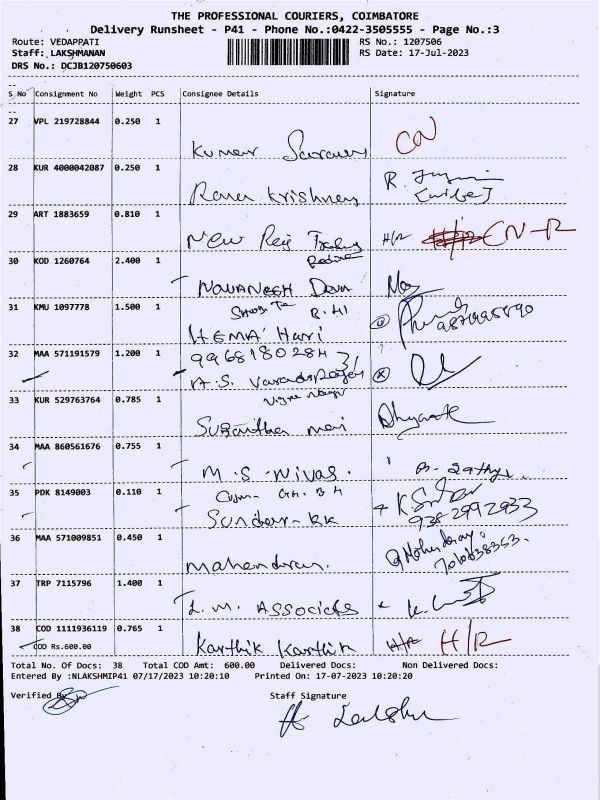 THE PROFESSIONAL COURIERS, COIMBATORE
Delivery Runsheet - P41 - Phone No.:0422-3505555 - Page No.:3
Route: VEDAPPATI RS No.: 1207506
Staff: LAKSHMANAN RS Date: 17-Jul-2023
DRS No.: DCJB120750603
S.No Consignment No Weight PCS Consignee Details Signature
27 VPL 219728844 0.250 1
Kumar CN
28 KUR 4000042087 0.250 1
Rama Krishnan R.
[wife]
29 ART 1883659 0.810 1
New H/R CN-R
30 KOD 1260764 2.400 1
NAVANEESH
31 KMU 1097778 1.500 1
HEMA Hari
32 MAA 571191579 1.200 1
9968180284
A.S. Varadarajan
33 KUR 529763764 0.785 1
Sugantha mani
34 MAA 860561676 0.755 1
M.S. NIVAS.
35 PDK 8149003 0.110 1
Sundar-KK 9382992933
36 MAA 571009851 0.450 1
Mahendiran.
37 TRP 7115796 1.400 1
L.M. Associates
38 COD 1111936119 0.765 1
COD Rs.600.00 Karthik Karthik H/R H/R
Total No. Of Docs: 38 Total COD Amt: 600.00 Delivered Docs: Non Delivered Docs:
Entered By :NLAKSHMIP41 07/17/2023 10:20:10 Printed On: 17-07-2023 10:20:20
Verified By Staff Signature